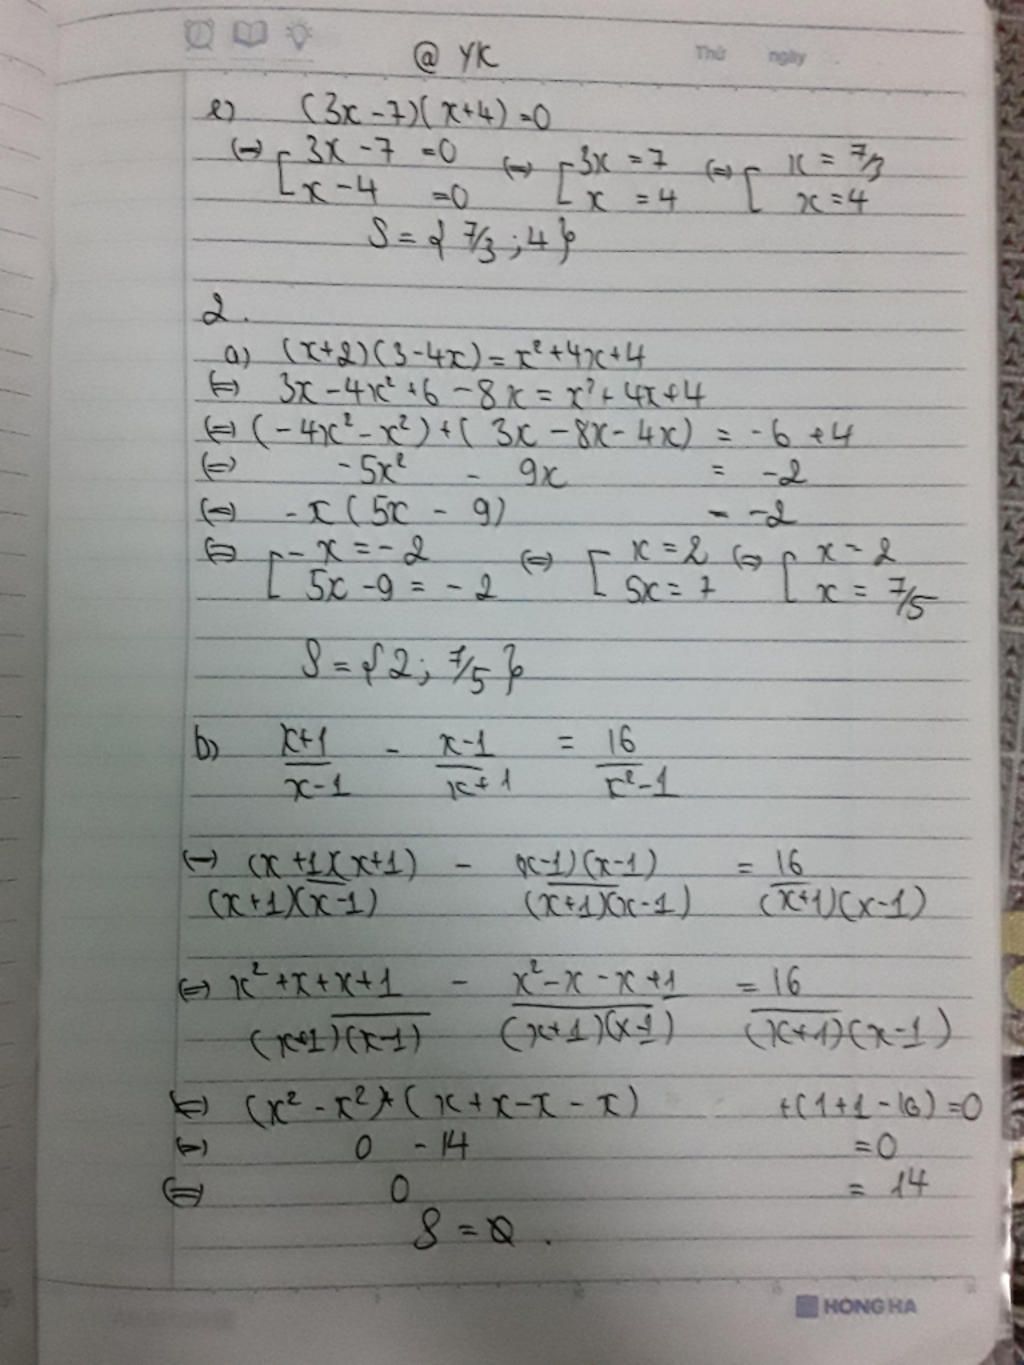 @ YK
Thứ ngày
e) (3x-7)(x+4)=0
(=) [3x-7 =0 (=) [3x =7 (=) [x = 7/3
x-4 =0 x =4 x=4
S={7/3;4}
2.
a) (x+2)(3-4x)=x²+4x+4
(=) 3x-4x²+6-8x=x²+4x+4
(=) (-4x²-x²)+(3x-8x-4x) = -6+4
(=) -5x² - 9x = -2
(=) -x(5x - 9) = -2
(=) [-x=-2 (=) [x=2 (=) [x=2
5x-9=-2 5x=7 x=7/5
S={2; 7/5}
b) x+1 - x-1 = 16
x-1 x+1 x²-1
(=) (x+1)(x+1) - (x-1)(x-1) = 16
(x+1)(x-1) (x+1)(x-1) (x+1)(x-1)
(=) x²+x+x+1 - x²-x-x+1 = 16
(x+1)(x-1) (x+1)(x-1) (x+1)(x-1)
(=) (x²-x²)+(x+x-x-x) +(1+1-16)=0
(=) 0 -14 =0
(=) 0 = 14
S=Ø.
HONG HA